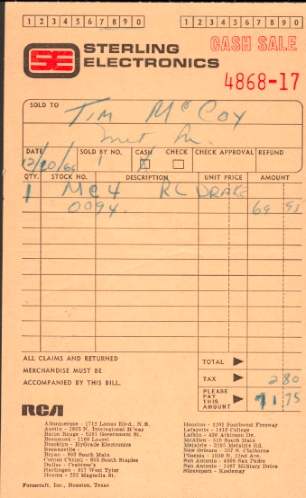 1 2 3 4 5 6 7 8 9 10 1 2 3 4 5 6 7 8 9 10
SE STERLING ELECTRONICS
CASH SALE
4868-17
SOLD TO
Tim McCoy
DATE SOLD BY NO. CASH CHECK CHECK APPROVAL REFUND
12/20/69 1 X
QTY. STOCK NO. DESCRIPTION UNIT PRICE AMOUNT
1 MC4 RL DRAKE
0094. 69 95
ALL CLAIMS AND RETURNED
MERCHANDISE MUST BE
ACCOMPANIED BY THIS BILL.
TOTAL
TAX 2 80
PLEASE PAY THIS AMOUNT 75
RCA
Albuquerque - 1712 Lomas Blvd. N.E.
Austin - 5805 N. International H'way
Baton Rouge - 5281 Government St.
Beaumont - 1160 Laurel
Brooklyn - ElyGrade Electronics
Brownsville -
Bryan - 803 South Main
Corpus Christi - 805 South Staples
Dallas - Crabtree's
Harlingen - 817 West Tyler
Houma - 222 Magnolia St.
Houston - 4201 Southwest Freeway
Lafayette - 115 College
Lufkin - 420 Atkinson Dr.
McAllen - 520 South Main
Metairie - 2205 Metairie Rd.
New Orleans - 337 N. Claiborne
San Antonio - 1407 Military Drive
Shreveport - Koelemay
Formcraft, Inc., Houston, Texas